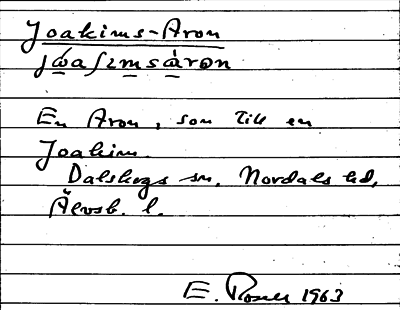 Joakims-Aron
En Aron, som till en
Joakim.
Dalskogs sn. Nordals hd,
Älvsb. l.
E. Rosell 1963